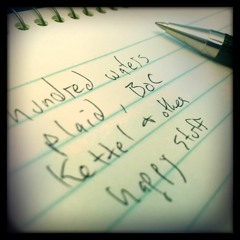 hundred waters
plaid, BoC
Kettel & other
happy stuff